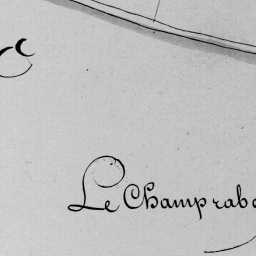 Le Champ rab